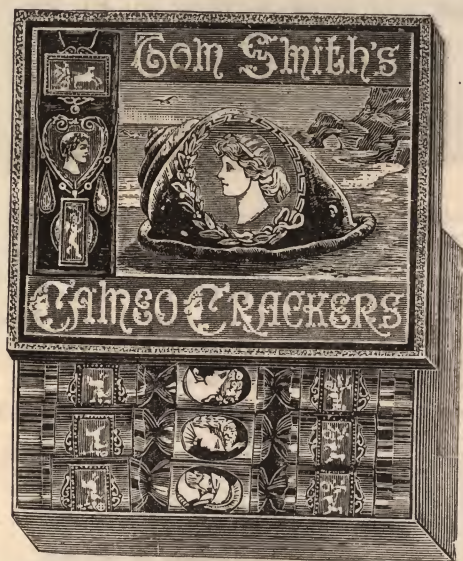 Tom Smith's
CAMEO CRACKERS